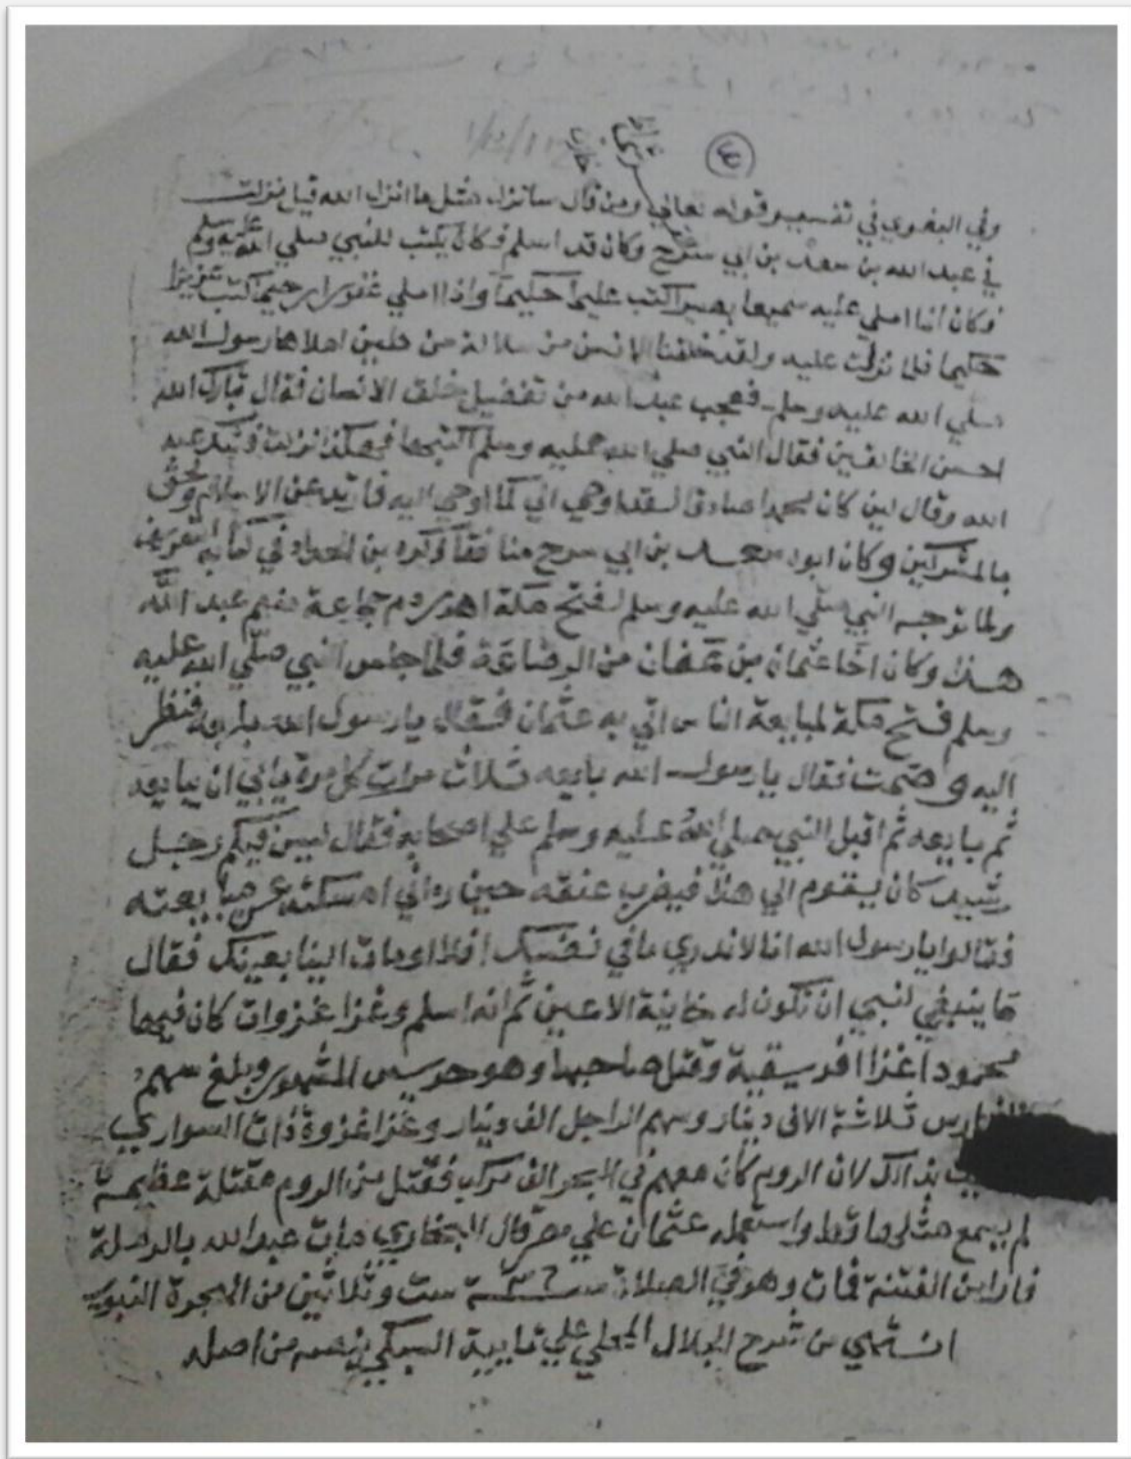 ٣
وفي البغوي في تفسير قوله تعالى ومن قال سانزل مثل ما انزل الله قيل نزلت
في عبد الله بن سعد بن ابي سرح وكان قد اسلم فكان يكتب للنبي صلي الله عليه وسلم
فكان اذا املي عليه سميعا بصيرا كتب عليما حكيما واذا املي غفورا رحيما كتب عزيزا
حكيما فلما نزلت عليه ولقد خلقنا الانسن من سلالة من طين املاها رسول الله
صلي الله عليه وسلم فعجب عبد الله من تفضيل خلق الانسان فقال تبارك الله
احسن الخالقين فقال النبي صلي الله عليه وسلم اكتبها فهكذا نزلت فشك عبد
الله وقال لين كان محمدا صادقا لقد اوحي الي كما اوحي اليه فارتد عن الاسلام ولحق
بالمشركين وكان ابوه سعد بن ابي سرح منافقا ذكره بن الحداد في كتابه التعريف
ولما توجه النبي صلي الله عليه وسلم لفتح مكة اهدر دم جماعة منهم عبد الله
هذا وكان اخا عثمان بن عفان من الرضاعة فلما جلس النبي صلي الله عليه
وسلم فتح مكة لمبايعة الناس اتي به عثمان فقال يا رسول الله بايعه فنظر
اليه وصمت فقال يا رسول الله بايعه ثلاث مرات كل مرة يابي ان يبايعه
ثم بايعه ثم اقبل النبي صلي الله عليه وسلم علي اصحابه فقال ليس فيكم رجل
رشيد كان يقوم الي هذا فيضرب عنقه حين راني امسكت عن مبايعته
فقالوا يا رسول الله انا لا ندري ما في نفسك افلا اومات الينا بعينك فقال
ما ينبغي لنبي ان تكون له خاينة الاعين ثم انه اسلم وغزا غزوات كان فيها
محمودا غزا افريقية وقتل صاحبها وهو جرسيس المشهور وبلغ سهم
الفارس ثلاثة الاف دينار وسهم الراجل الف دينار وغزا غزوة ذات السواري
بذالك لان الروم كان معهم في البحر الف مركب فقتل من الروم مقتلة عظيمة
لم يسمع مثلها قط واستعمله عثمان علي مصر قال البخاري مات عبد الله بالرملة
فارا من الفتنة فمات وهو في الصلاة سنة ٣٦ ست وثلاثين من الهجرة النبوية
انتهي من شرح الجلال المحلي علي تايية السبكي بنصه من اصله